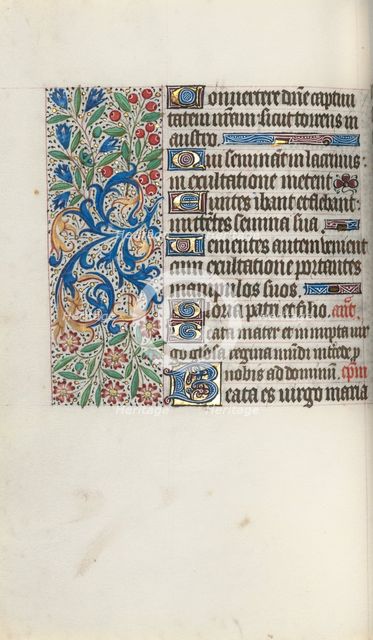 Convertere dñe captivi
tatem nr̃am sicut torrens in
austro.
Qui seminant in lacrimis:
in exultatione metent
Euntes ibant et flebant:
mittentes semina sua.
Venientes autem venient
cum exultatione portantes
manipulos suos.
Gloria patri et filio. añt.
Beata mater et innupta vir
go gl̃osa regina mũdi intcede p
nobis ad dominũ. cap̃m
Beata es virgo maria
Heritage
Heritage